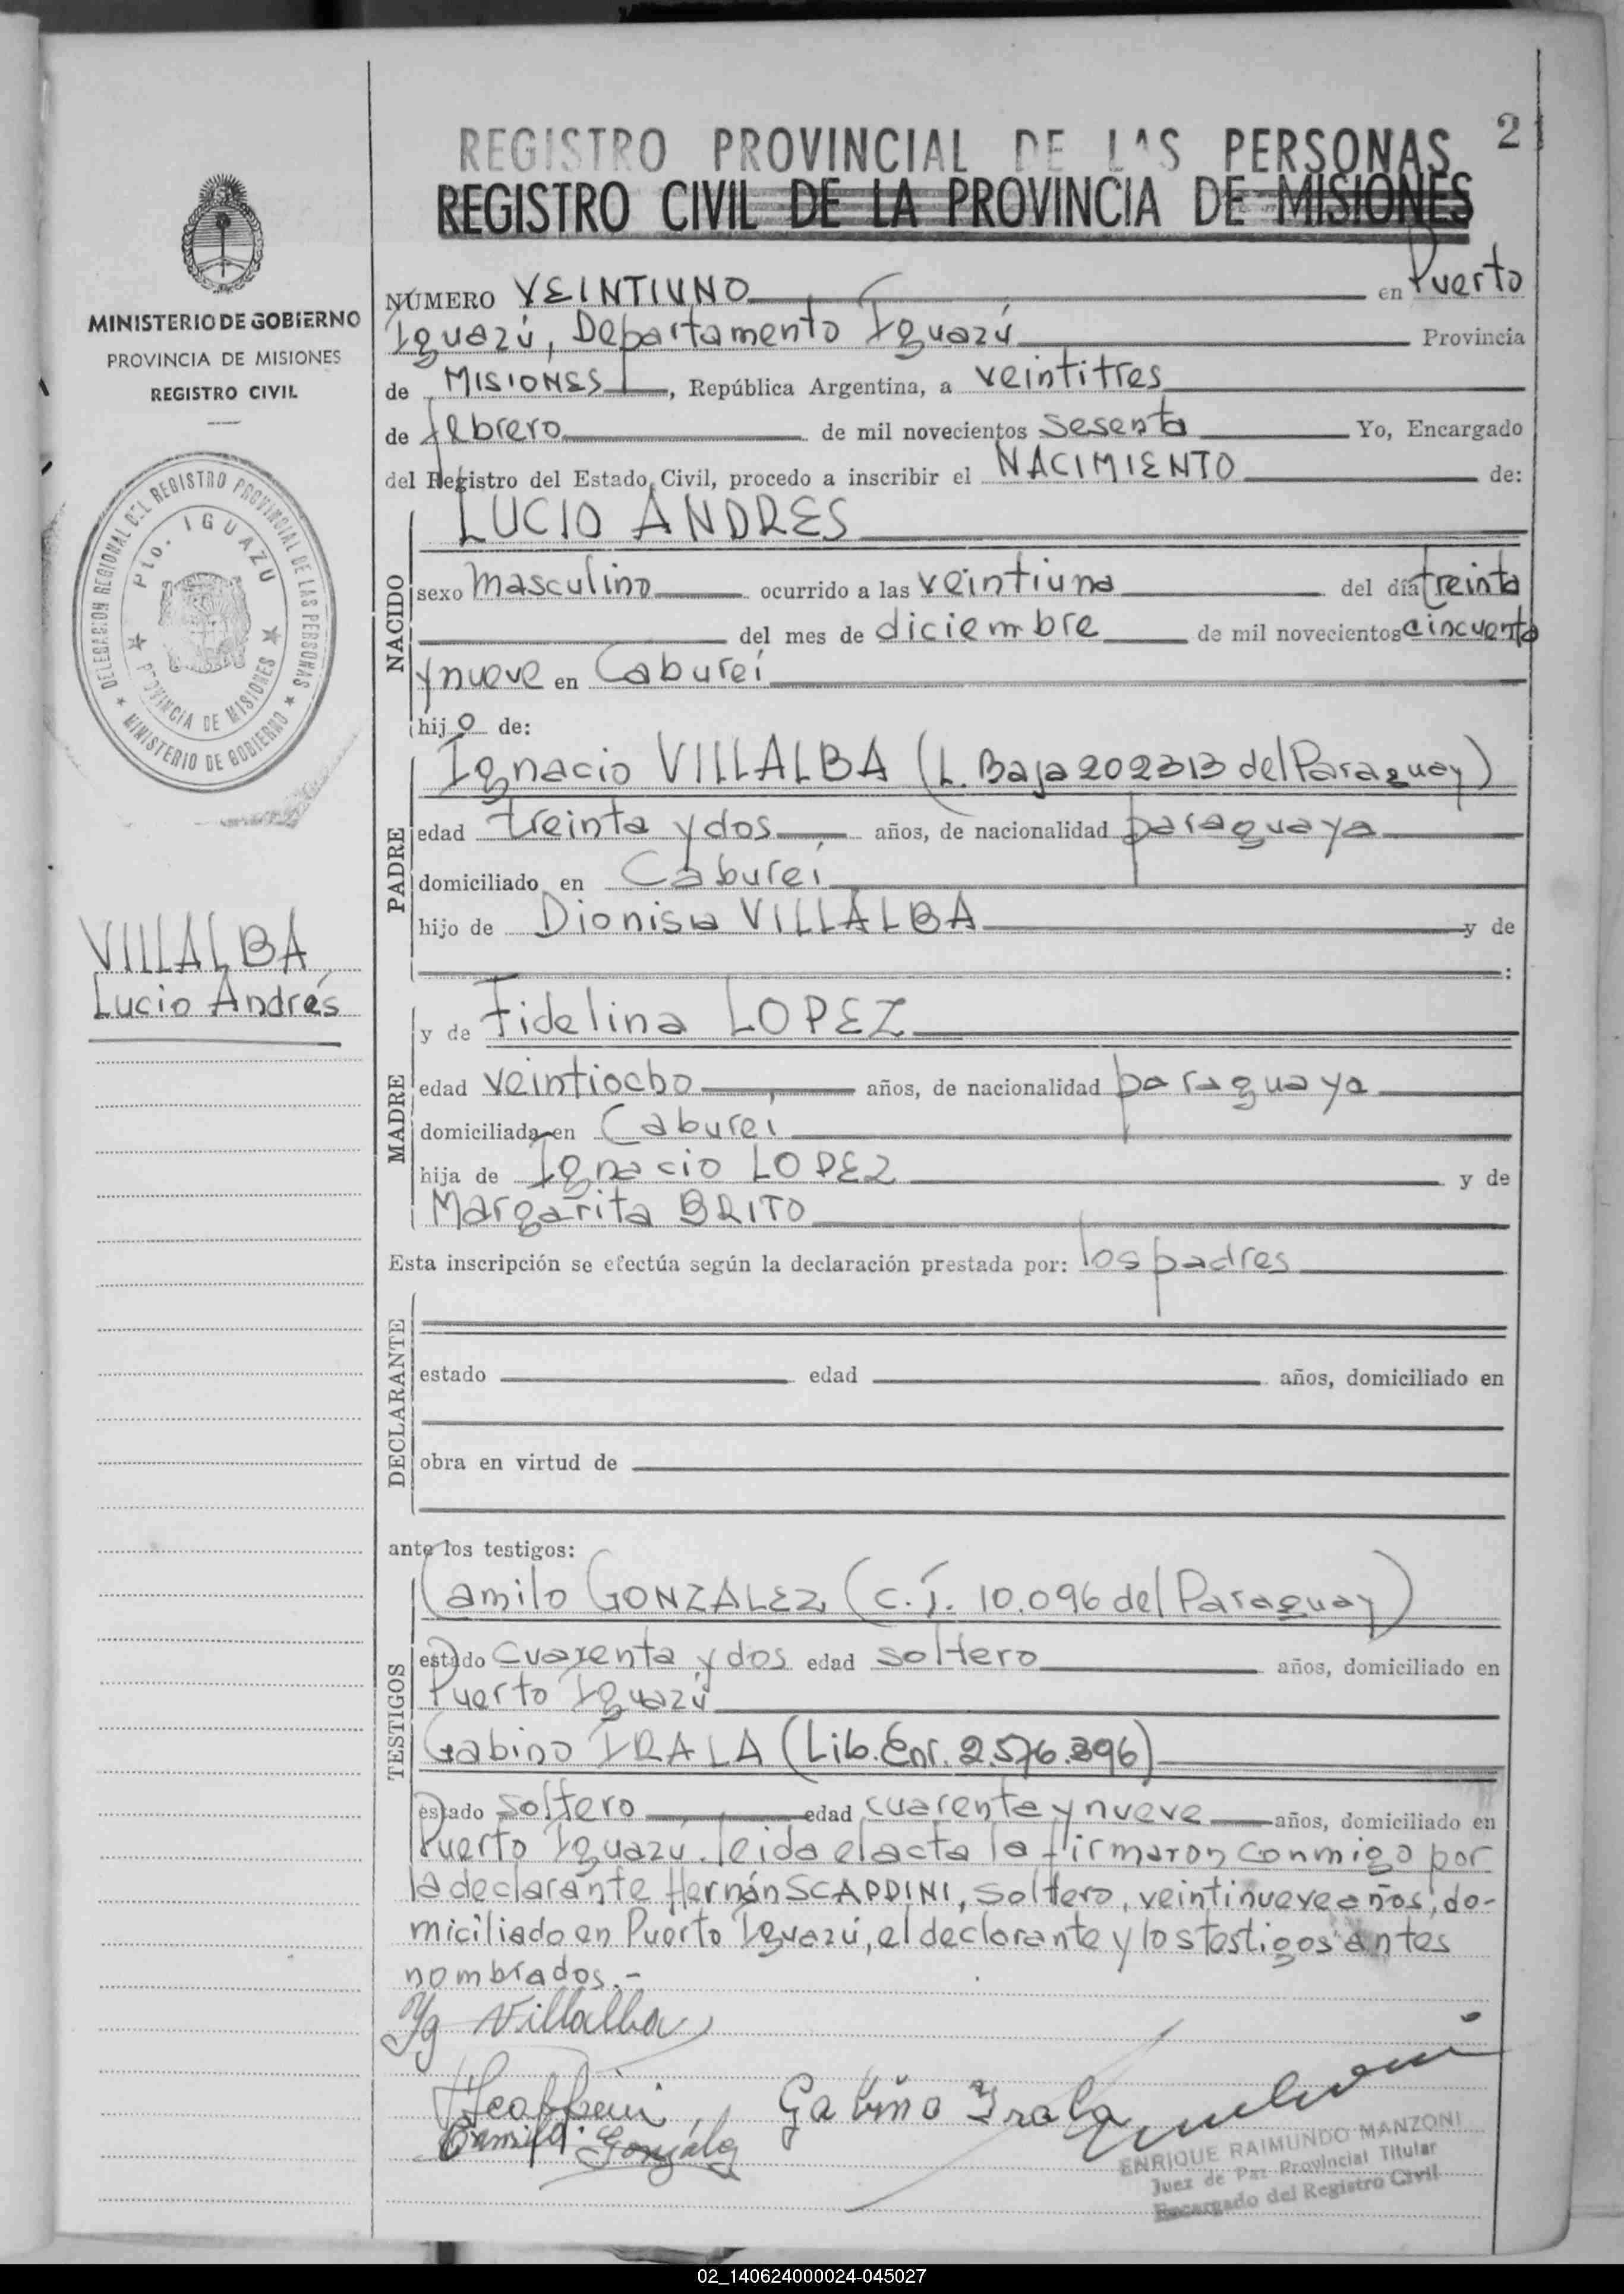 REGISTRO PROVINCIAL DE LAS PERSONAS 2
REGISTRO CIVIL DE LA PROVINCIA DE MISIONES
MINISTERIO DE GOBIERNO
PROVINCIA DE MISIONES
REGISTRO CIVIL
DELEGACION REGIONAL DEL REGISTRO PROVINCIAL DE LAS PERSONAS
Pto. IGUAZU
PROVINCIA DE MISIONES
MINISTERIO DE GOBIERNO
VILLALBA
Lucio Andrés
NÚMERO VEINTIUNO en Puerto
Iguazú, Departamento Iguazú Provincia
de MISIONES, República Argentina, a veintitres
de febrero de mil novecientos sesenta Yo, Encargado
del Registro del Estado Civil, procedo a inscribir el NACIMIENTO de:
NACIDO
LUCIO ANDRES
sexo masculino ocurrido a las veintiuna del día treinta
del mes de diciembre de mil novecientos cincuenta
y nueve en Cabureí
hijo de:
PADRE
Ignacio VILLALBA (L. Baja 202313 del Paraguay)
edad treinta y dos años, de nacionalidad paraguaya
domiciliado en Cabureí
hijo de Dionisia VILLALBA y de
:
MADRE
y de Fidelina LOPEZ
edad veintiocho años, de nacionalidad paraguaya
domiciliada en Cabureí
hija de Ignacio LOPEZ y de
Margarita BRITO
Esta inscripción se efectúa según la declaración prestada por: los padres
DECLARANTE
estado edad años, domiciliado en
obra en virtud de
ante los testigos:
TESTIGOS
Camilo GONZALEZ (C.I. 10.096 del Paraguay)
estado cuarenta y dos edad soltero años, domiciliado en
Puerto Iguazú
Gabino IRALA (Lib. Enr. 2.576.396)
estado soltero edad cuarenta y nueve años, domiciliado en
Puerto Iguazú. leida el acta la firmaron conmigo por
la declarante Hernán SCAPPINI, soltero, veintinueve años, do-
miciliado en Puerto Iguazú, el declarante y los testigos antes
nombrados.-
Yg Villalba
HScappini Gabino Irala
Camilo Gonzalez
ENRIQUE RAIMUNDO MANZONI
Juez de Paz Provincial Titular
Encargado del Registro Civil
02_140624000024-045027